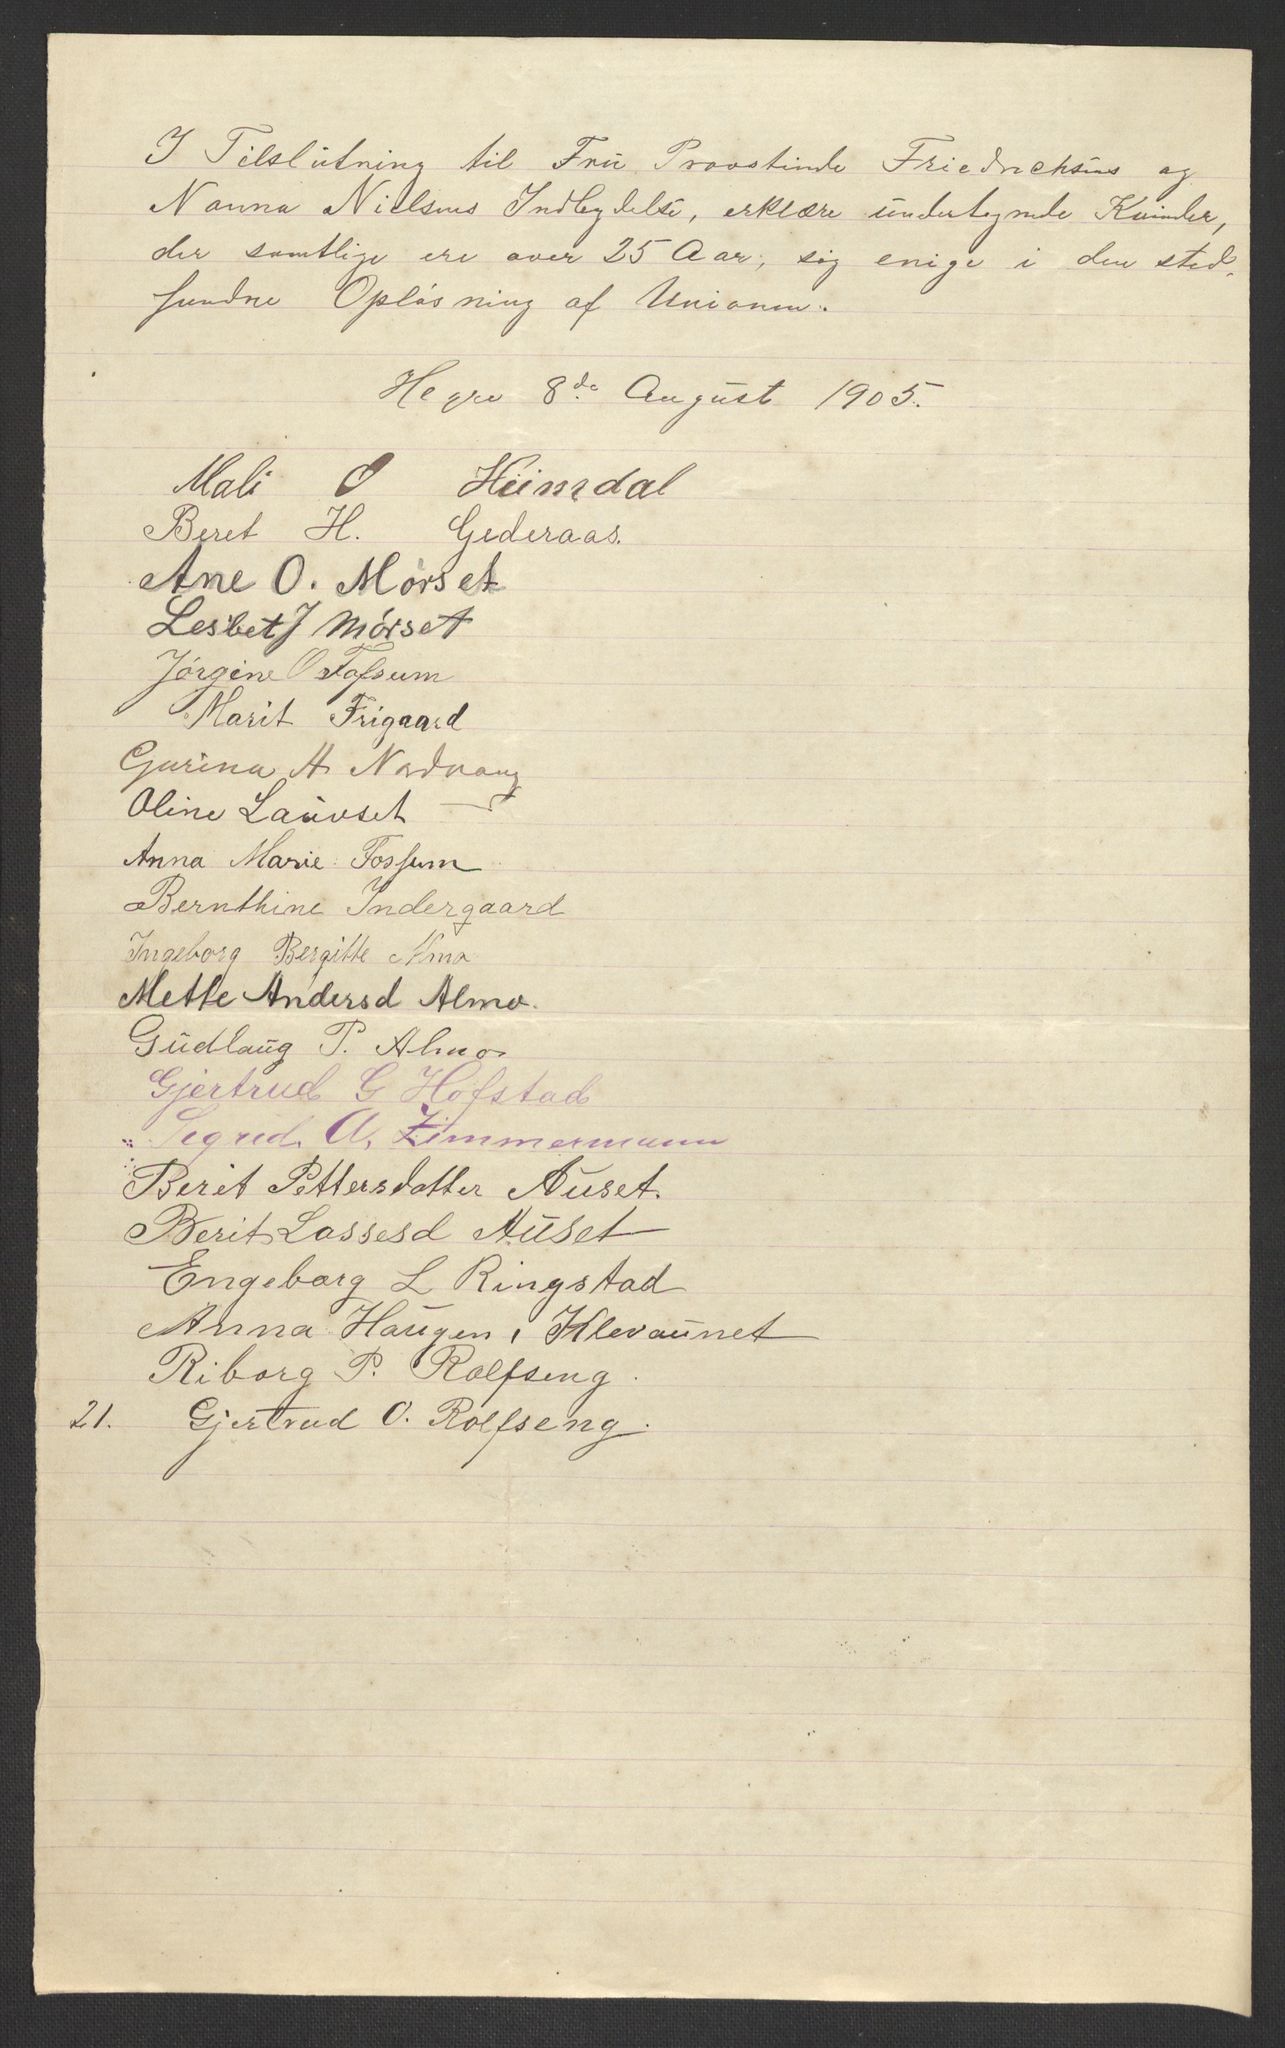 I Tilslutning til Fru Provstinde Friedrichsens og
Nanna Nielsens Indbydelse, erklære undertegnede Kvinder,
der samtlige ere over 25 Aar, sig enige i den sted-
fundne Opløsning af Unionen.
Hegre 8de August 1905.
Mali O Heimdal
Beret H. Gederaas.
Ane O. Mørset
Lesbet J Mørset
Jørgine O Fossum
Marit Frigaard
Gurina A Nordvang
Oline Lauvset
Anna Marie Fossum
Bernthine Indergaard
Ingeborg Bergitte Almo
Mette Andersd Almo.
Gudlaug P. Almo
Gjertrud G Hofstad
Segred. A, Zimmermann
Berit Pettersdatter Auset.
Berit Lassesd Auset
Engeborg L Ringstad
Anna Haugen, Klevaunet
Riborg P. Rolfseng.
21. Gjertrud O. Rolfseng.